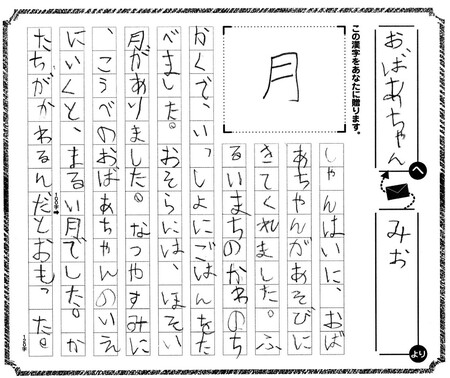 おばあちゃん
へ
みお
より
この漢字をあなたに贈ります。
月
しゃんはいに、おば
あちゃんがあそびに
きてくれました。ふ
るいまちのかわのち
かくで、いっしょにごはんをた
べました。おそらには、ほそい
月がありました。なつやすみに
、こうべのおばあちゃんのいえ
にいくと、まるい月でした。か
100字
たちがかわるんだとおもった。
120字